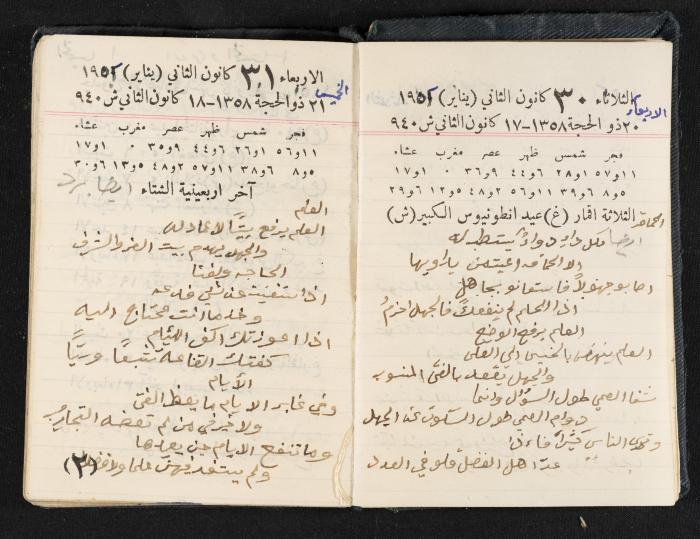 الثلاثاء ٣٠ كانون الثاني (يناير) ١٩٥٢
الاربعاء
٢٠ ذو الحجة ١٣٥٨ – ١٧ كانون الثاني ش ٩٤٠
فجر شمس ظهر عصر مغرب عشاء
١١و٥٧ ١و٢٨ ٦و٤٤ ٩و٣٦ ٠و١ ١و١٧
٥و٨ ٦و٣٩ ١١و٥٦ ٢و٤٨ ٥و١٢ ٦و٢٩
الثلاثة اقمار (غ) عيد انطونيوس الكبير (ش)
الحماقة
ايضا لكل داء دواء يستطب به
الا الحماقة اعيت من يداويها
اصاب جهولا فاستعانو بجاهل
اذا الحلم لم ينفعك فالجهل احزم
العلم يرفع الوضيع
العلم ينهض بالخسيس الى العلى
والجهل يقعد بالفتى المنسوب
شفا العمى طول السؤال وانما
دوام العمى طول السكوت عن الجهل
الناس
عدا اهل الفضل قلو في العدد
الاربعاء ٣١ كانون الثاني (يناير) ١٩٥٢
الخميس
٢١ ذو الحجة ١٣٥٨ – ١٨ كانون الثاني ش ٩٤٠
فجر شمس ظهر عصر مغرب عشاء
١١و٥٦ ١و٢٦ ٦و٤٤ ٩و٣٥ ٠و١ ١و١٧
٥و٨ ٦و٣٨ ١١و٥٧ ٢و٤٨ ٥و١٣ ٦و٣٠
آخر اربعينية الشتاء ايضا برد
العلم
العلم يرفع بيتا لا عماد له
والجهل يهدم بيت العز والشرف
الحاجة
اذا ستغنيت عن شيئ فدعه
وخذ ما انت محتاج اليه
اذا اعوزتك اكف اللئيام
كفتك القناعة شبعا وريا
الايام
وفي غابر الايام ما يعظ الفتى
ولا خير في من لم تعضه التجارب
وما تنفع الايام حين يعدها
ولم يستفد فيهن علما ولا فضلا
(٣)